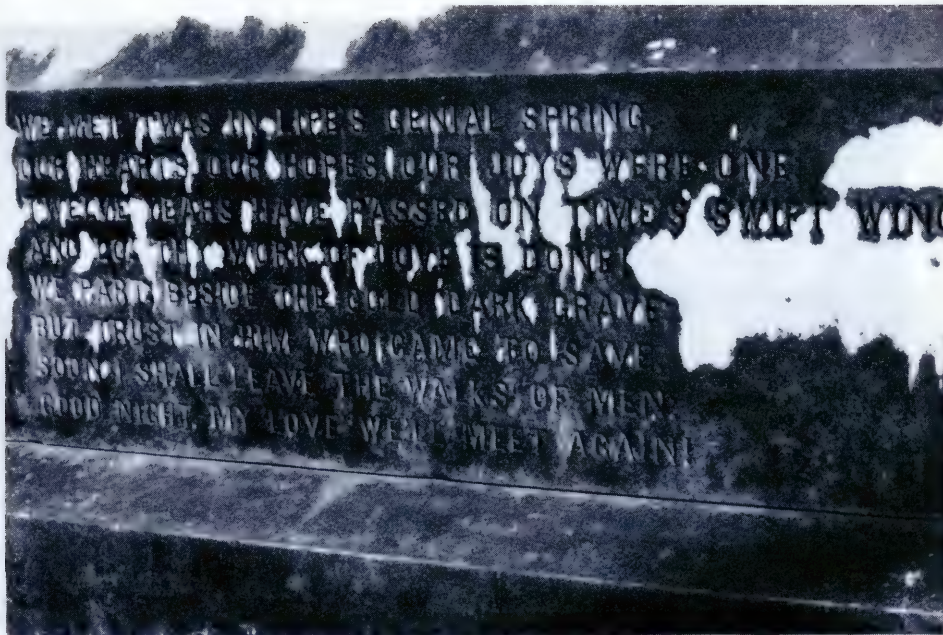 WE MET 'TWAS IN LIFE'S GENIAL SPRING,
OUR HEARTS OUR HOPES, OUR JOYS WERE ONE
TWELVE YEARS HAVE PASSED ON TIME'S SWIFT WING
AND THE WORK OF LOVE IS DONE
WE PART BESIDE THE COLD DARK GRAVE
BUT TRUST IN HIM WHO CAME TO SAVE
SOON I SHALL LEAVE THE WALKS OF MEN,
GOOD NIGHT, MY LOVE WE'LL MEET AGAIN!